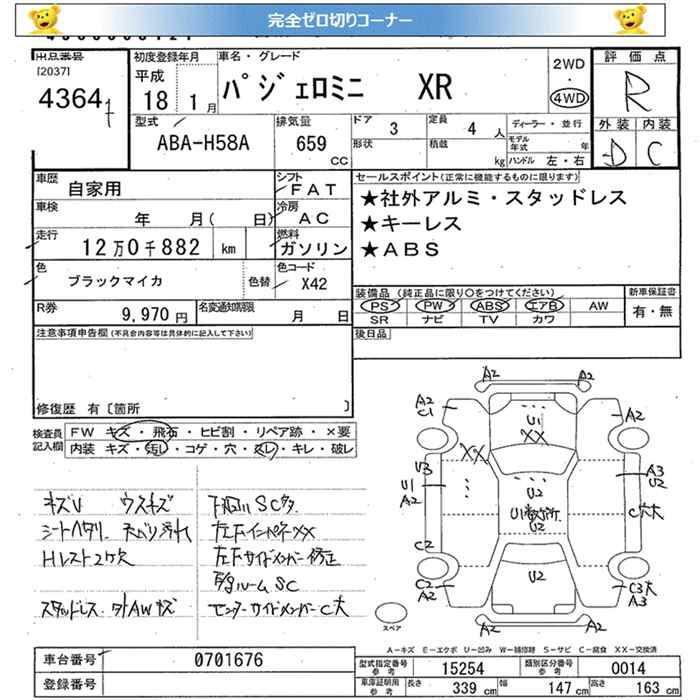 完全ゼロ切りコーナー
出品番号 初度登録年月 車名・グレード 2WD 評価点
[2037] 平成 ・
4364 18 1月 パジェロミニ XR 4WD R
型式 排気量 ドア 3 定員 4人 ディーラー・並行 外装 内装
ABA-H58A 659 CC 形状 積載 kg モデル年式 年 D C
ハンドル 左・右
車歴 自家用 シフト FAT セールスポイント(正常に機能するものに限ります)
車検 年 月( 日) 冷房 AC ★社外アルミ・スタッドレス
走行 12万0千882 km 燃料 ガソリン ★キーレス
★ABS
色 ブラックマイカ 色替 色コード X42
装備品(純正品に限り○をつけてください) 新車保証書
R券 9,970円 名変通知期限 月 日 PS PW ABS エアB AW 有・無
SR ナビ TV カワ
注意事項申告欄(不具合内容等は具体的に記入して下さい) 後日品
修復歴 有〔箇所 〕
検査員記入欄 FW キズ・飛石・ヒビ割・リペア跡・×要
内装 キズ・汚レ・コゲ・穴・スレ・キレ・破レ
A2 A2
A2 C1 U1 XX A2
XX
U3 U1 A2 U2 A3 U2
U2 C大
C2 U2
C2 A2 C3大 A3
A2 A2
キズU ウスキズ
シートヘタリ
Hレスト2ケ欠 左F サイドメンバー修正
ルームSC
スタッドレス 外AWキズ センターサイドメンバーC大
スペア
A-キズ E-エクボ U-凹み W-補修跡 S-サビ C-腐食 XX-交換済
車台番号 0701676 型式指定番号 参考 15254 類別区分番号 参考 0014
登録番号 車庫証明用 参考 長さ 339cm 幅 147cm 高さ 163cm